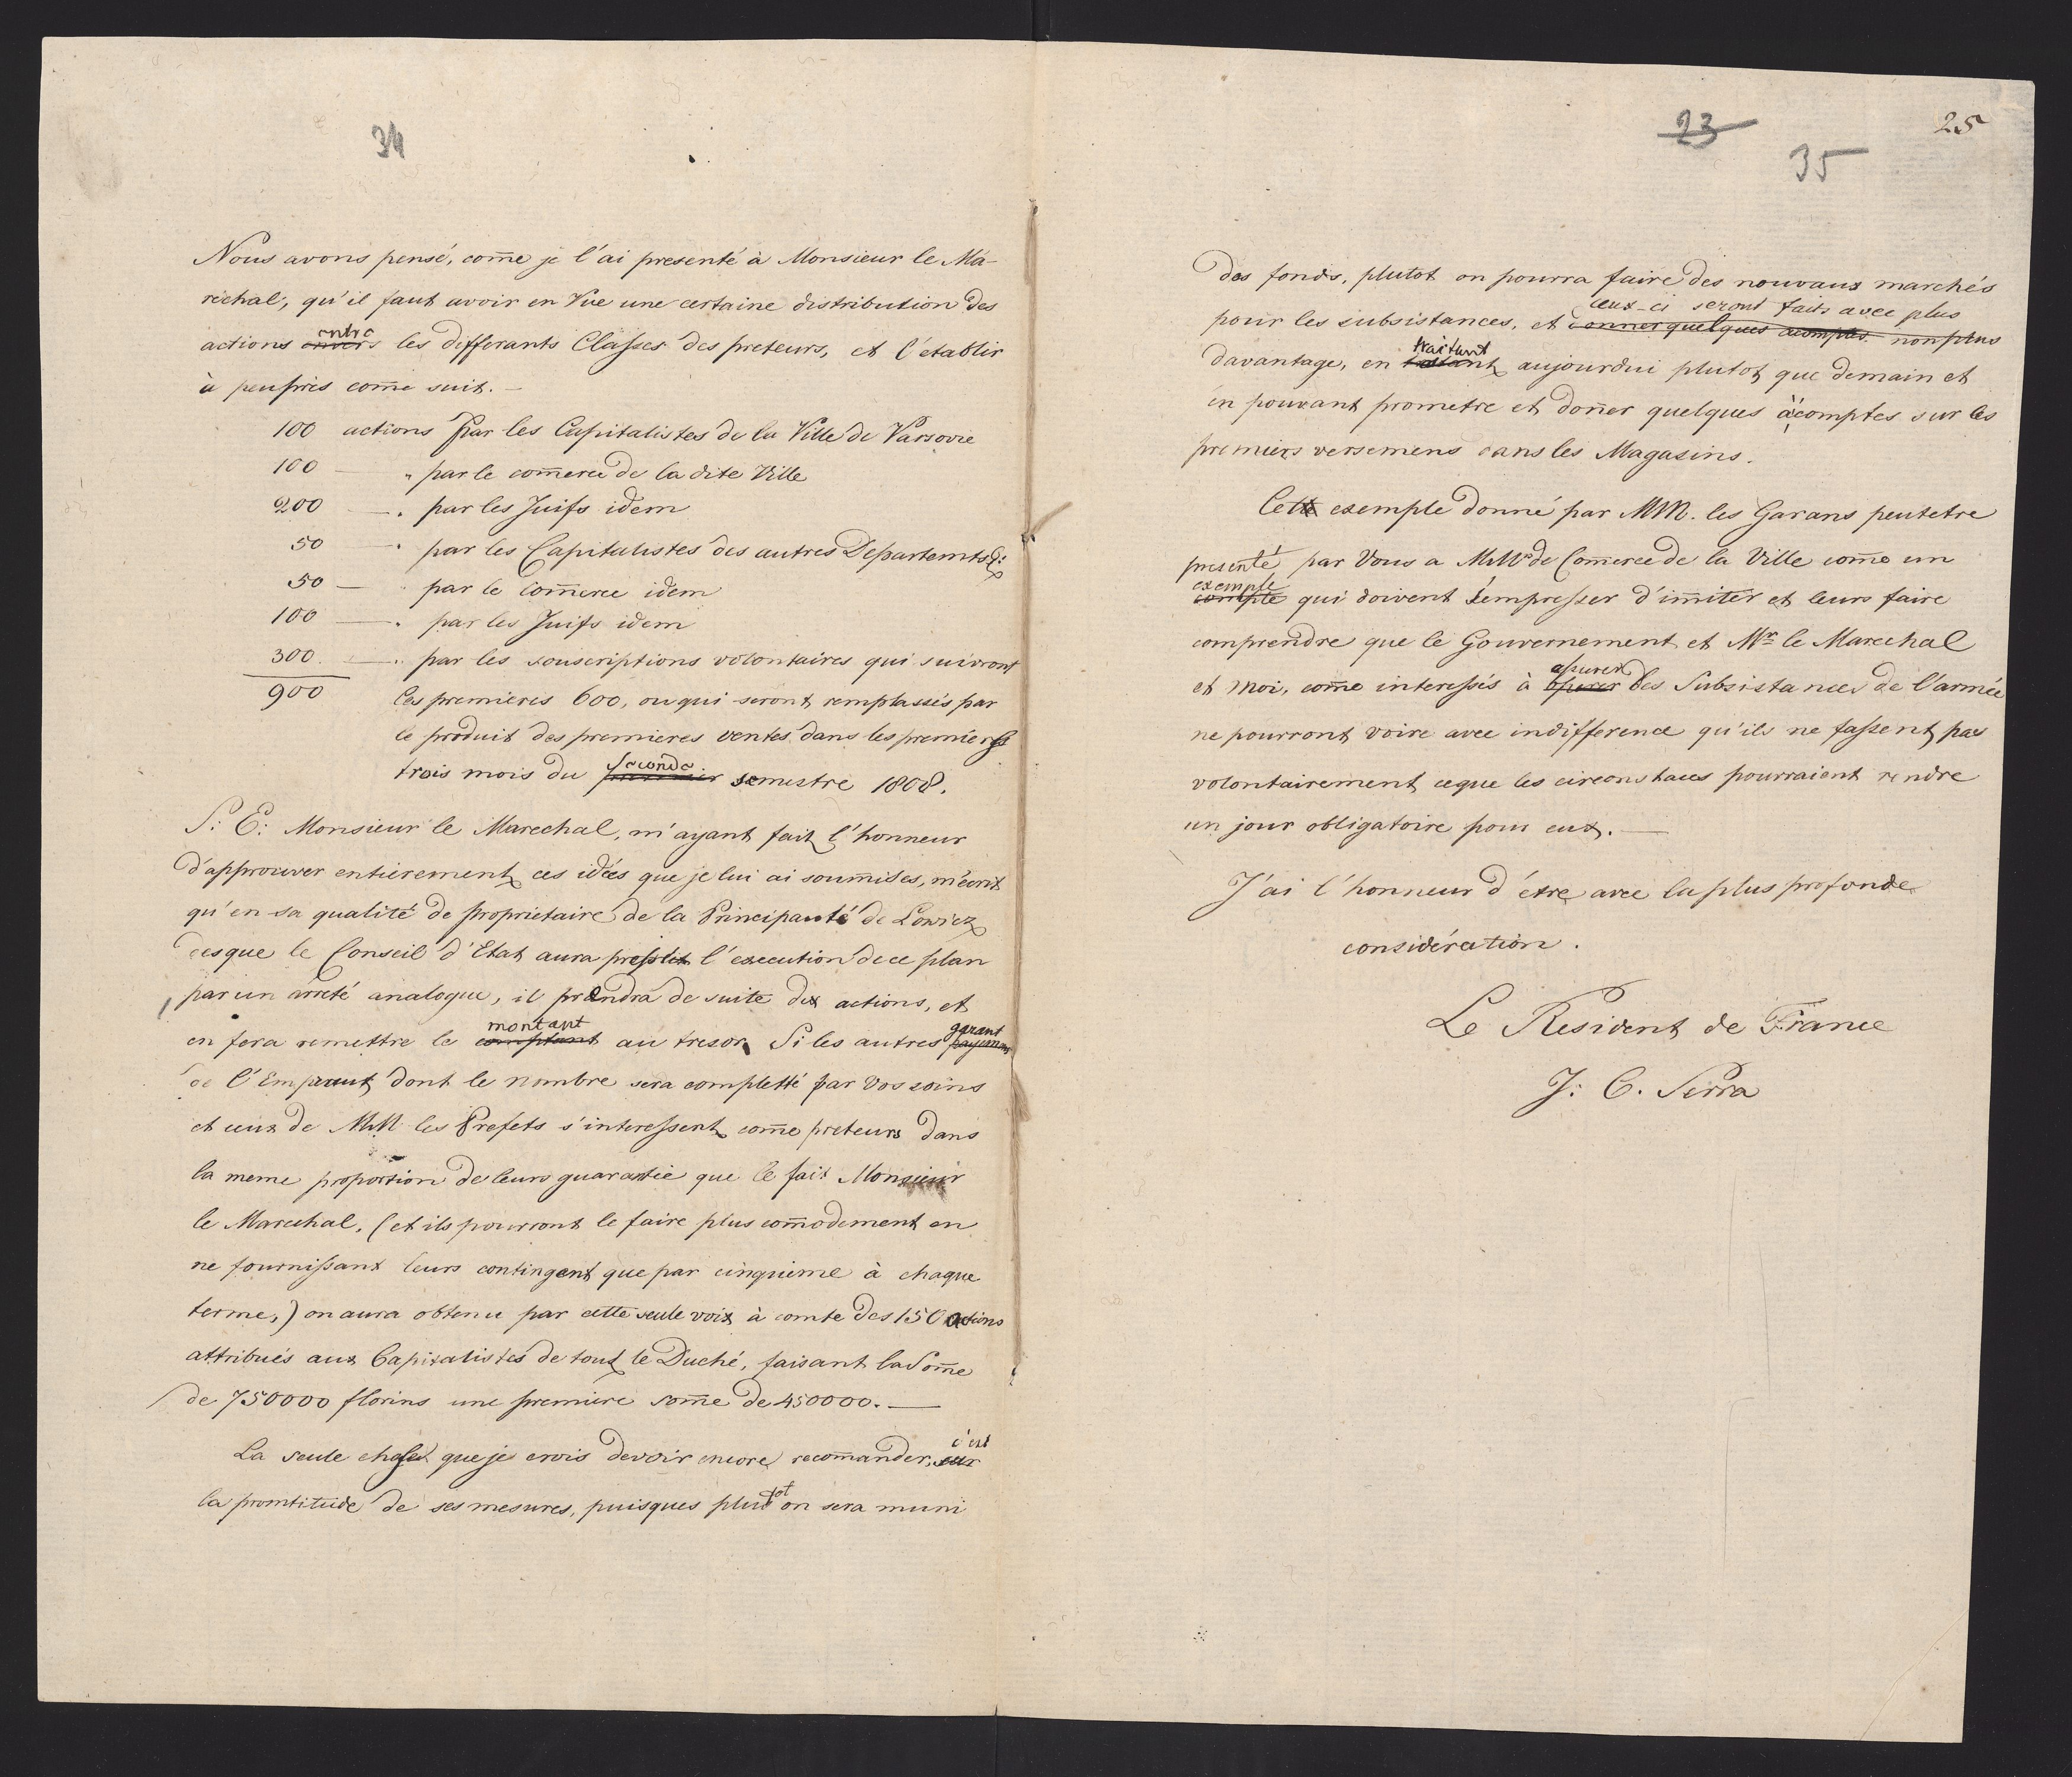 34
Nous avons pensé, com̄e je l'ai presenté à Monsieur le Ma-
rêchal, qu'il faut avoir en Vüe une certaine distribution des
entre
actions envers les defferants Claſses des preteurs, et l'etablir
à peuprès com̄e suit. —
100 actions par les Capitalistes de la Ville de Varsovie
100 — „ par le com̄erce de la dite Ville
200 — „ par les Juifs idem
50 — „ par les Capitalistes des autres Departemts
50 — „ par le Com̄erce idem
100 — „ par les Juifs idem
300 — „ par les souscriptions volontaires qui suivront
900 les premieres 600, ou qui seront remplassés par
le produit des premieres ventes dans les premiers
seconde
trois mois du premier semestre 1808.
S: E: Monsieur le Marechal, m'ayant fait l'honneur
d'approuver entièrement ces idées que je lui ai soum̄ises, m'écrit
qu'en sa qualité de propriétaire de la Principauté de Lowicz
desque le Conseil d'Etat aura l'execution de ce plan
par un arreté analogue, il prendra de suite dix actions, et
montant garant
en fera remettre le comptant au tresor. Si les autres payemens
de l'Emprunt dont le nombre sera completté par vos soins
et ceux de MM les Prefets s'intereſsent com̄e preteurs dans
la meme proportion de leurs guarantie que le fait Monsieur
le Marechal, (et ils pourront le faire plus com̄odement en
ne fourniſsant leurs contingent que par cinquieme à chaque
terme,) on aura obtenu par cette seule voix à comte des 150 actions
attribués aux Capitalistes de tout le Duché, faisant la Som̄e
de 750000 florins une premiere som̄e de 450000. —
c'est
La seule chose que je crois devoir encore recom̄ander, sur
tot
la promtitude de ses mesures, puisques plus on sera muni
23 25
35
des fonds, plutot on pourra faire des nouvaux marchés
ceux-ci seront faits avec plus
pour les subsistances, et donner quelques acomptes non plus
traitant
davantage, en aujourdui plutot que demain et
en pouvant prometre et don̄er quelques àcomptes sur les
premiers versemens dans les Magasins.
Cet exemple donné par MM. les Garans peutetre
presenté par Vous a MM de Com̄erce de la Ville com̄e un
exemple
compte qui doivent s'empreſser d'im̄iter et leurs faire
comprendre que le Gouvernement et Mr le Marechal
aſsurer
et moi, com̄e intereſsés à operer les Subsistances de l'armée
ne pourront voire avec indifference qu'ils ne faſsent pas
volontairement ceque les circonstaces pourraient rendre
un jour obligatoire pour eux. —
J'ai l'honneur d'étre avec la plus profonde
considération.
Le Resident de France
J: C. Serra